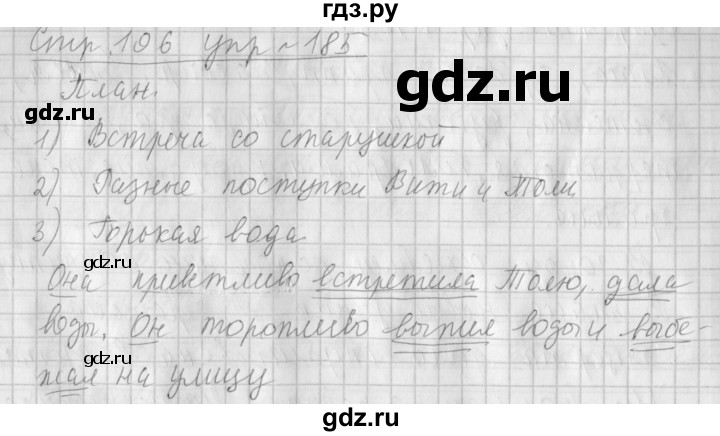 гдз.ру
Стр. 106 упр ~ 185
План.
gdz.ru
gdz.ru
1) Встреча со старушкой
2) Разные поступки Вити и Толи
gdz.ru
3) Горькая вода
gdz.ru
Она приветливо встретила Толю, дала
воды. Он торопливо выпил воды и выбе-
gdz.ru
жал на улицу
gdz.ru